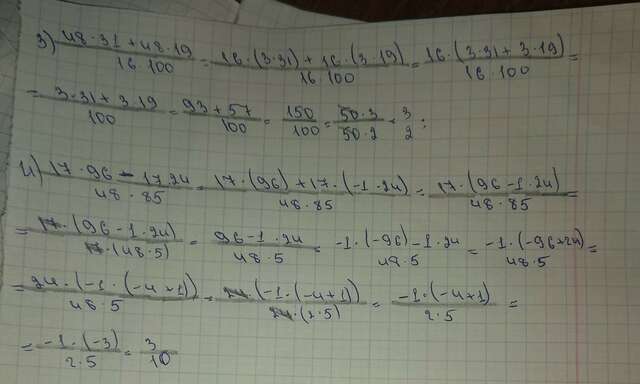 з) (48·31+48·19)/(16·100) = (16·(3·31)+16·(3·19))/(16·100) = (16·(3·31+3·19))/(16·100) =
= (3·31+3·19)/100 = (93+57)/100 = 150/100 = (50·3)/(50·2) = 3/2;
и) (17·96-17·24)/(48·85) = (17·(96)+17·(-1·24))/(48·85) = (17·(96-1·24))/(48·85) =
= (17·(96-1·24))/(17·(48·5)) = (96-1·24)/(48·5) = (-1·(-96)-1·24)/(48·5) = (-1·(-96+24))/(48·5) =
= (24·(-1·(-4+1)))/(48·5) = (24·(-1·(-4+1)))/(24·(2·5)) = (-1·(-4+1))/(2·5) =
= (-1·(-3))/(2·5) = 3/10